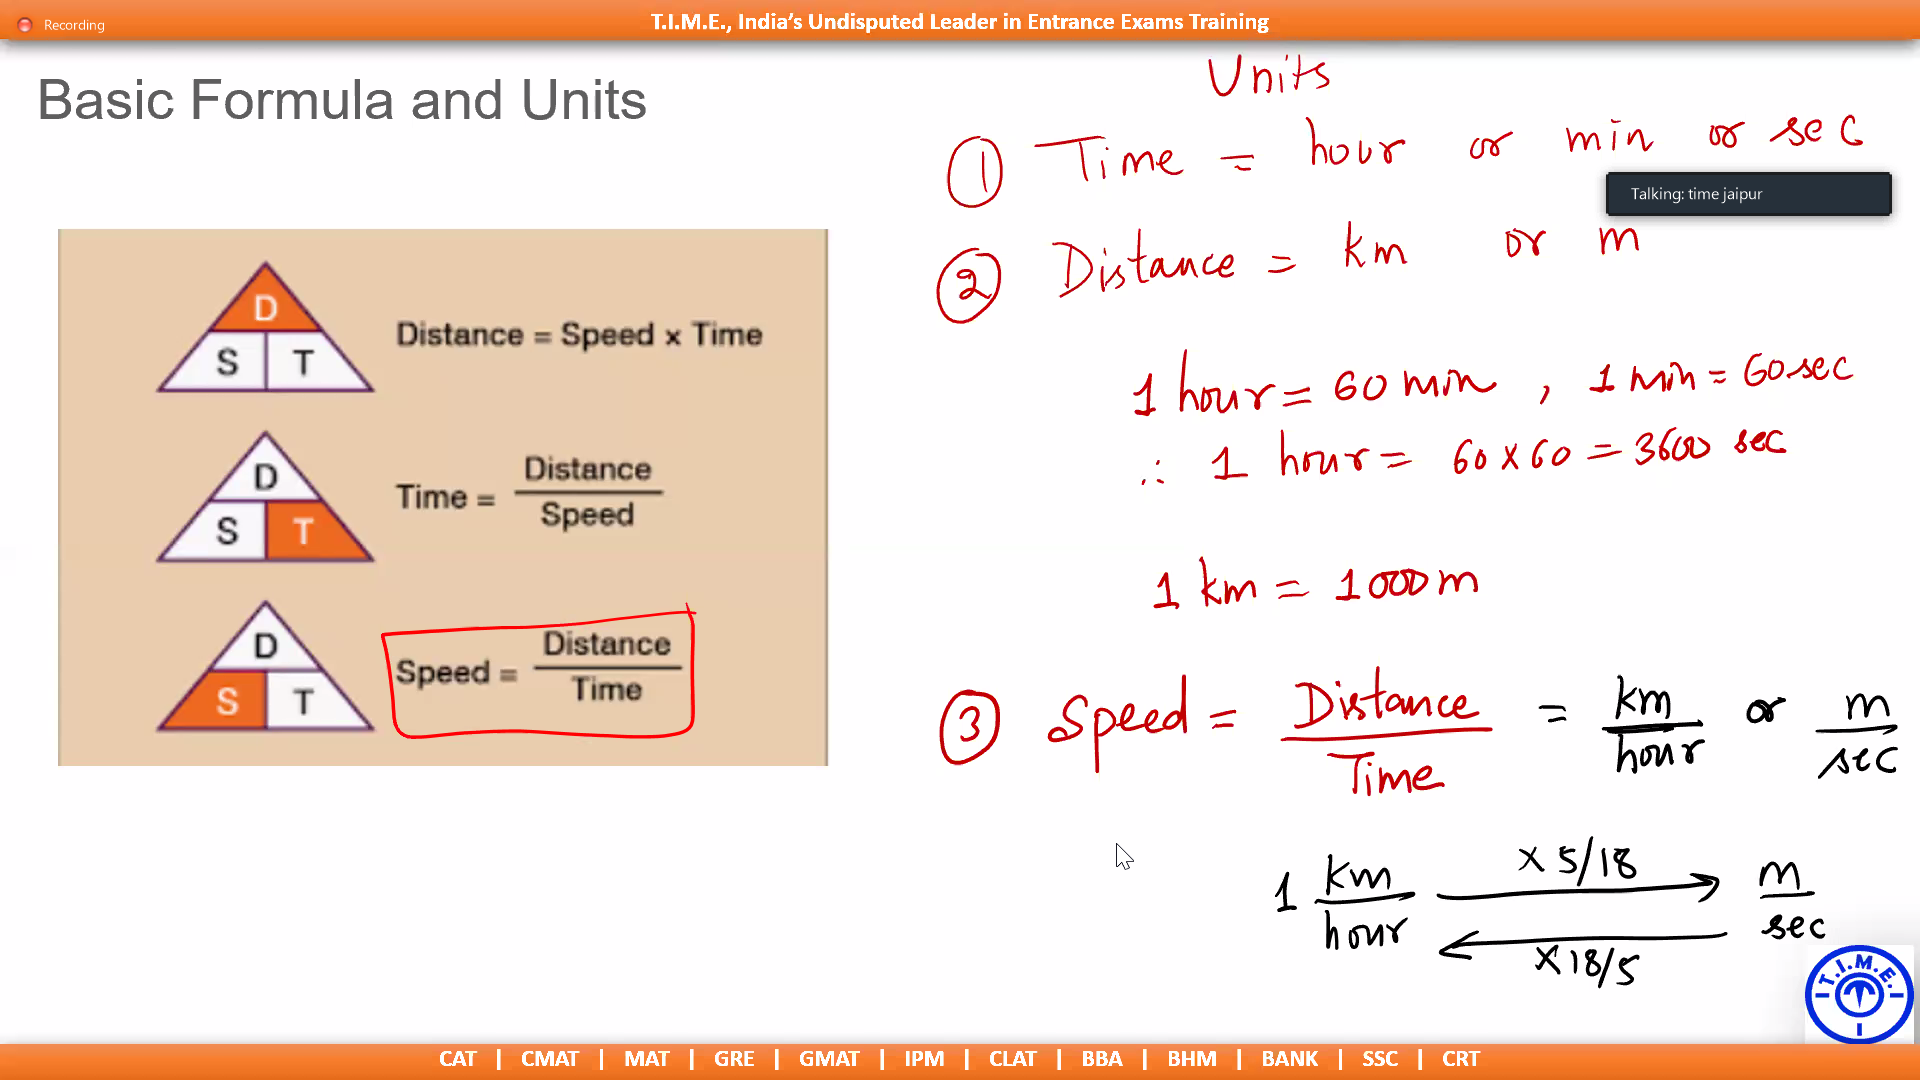 Recording
T.I.M.E., India's Undisputed Leader in Entrance Exams Training
Basic Formula and Units
D
S T
Distance = Speed x Time
D
S T
Time = Distance
Speed
D
S T
Speed = Distance
Time
Units
1 Time = hour or min or sec
Talking: time jaipur
2 Distance = km or m
1 hour = 60 min , 1 min = 60 sec
∴ 1 hour = 60 x 60 = 3600 sec
1 km = 1000 m
3 Speed = Distance = km or m
Time hour sec
1 km x 5/18 m
hour x 18/5 sec
T.I.M.E.
CAT | CMAT | MAT | GRE | GMAT | IPM | CLAT | BBA | BHM | BANK | SSC | CRT